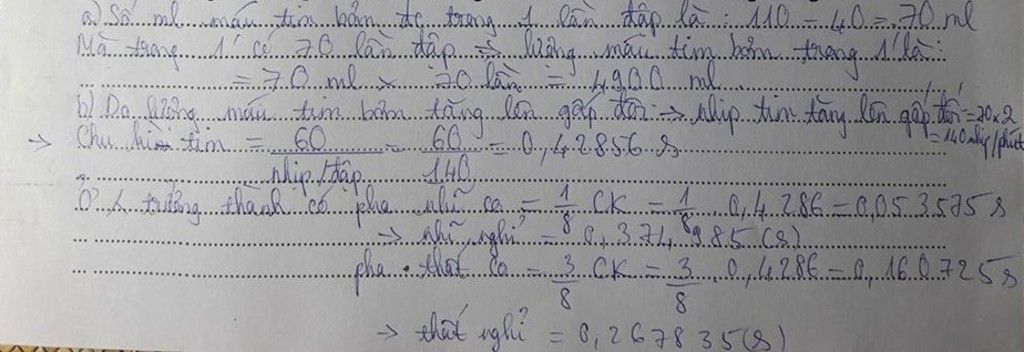 a) Số ml máu tim bơm đc trong 1 lần đập là : 110 - 40 = 70 ml
Mà trong 1' có 70 lần đập => lượng máu tim bơm trong 1' là:
= 70 ml x 70 lần = 4900 ml
b) Do lượng máu tim bơm tăng lên gấp đôi → nhịp tim tăng lên gấp đôi = 70 x 2
= 140 nhịp/phút
→ Chu kì tim = 60 / nhịp/đập = 60 / 140 = 0,42856 s
Ở trưởng thành có pha nhĩ co = 1/8 CK = 1/8 . 0,4286 = 0,053575 s
→ nhĩ nghỉ = 0,374985 (s)
pha thất co = 3/8 CK = 3/8 . 0,4286 = 0,160725 s
→ thất nghỉ = 0,267835 (s)